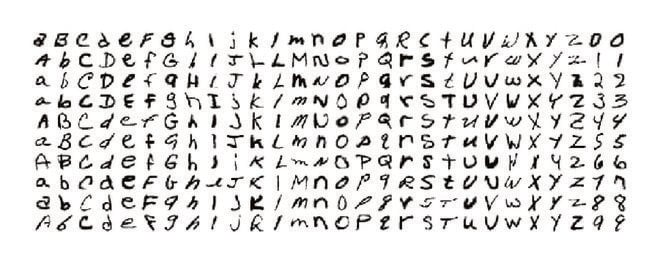 a B C d e F g h I j k l m n O P q R S t U V W X Y Z 0 0
A b C D e f G h I J L L M N O P Q r S t u r w X Y z 1 1
a b C D e f g H I J k L m N O P g r S t U V w x Y z 2 2
a b C D E f g h I j k l m n O p q r S T U V W X Y Z 3 3
A B C d e f G h I J K l m N O P Q r S t u V W X Y Z 4 4
a B C d e f g h I J K L m n O p q r S t u V W X Y Z 5 5
A B C D e f G h I i K L m N O P Q R S t U U W X Y Z 6 6
a b C d e F G h i J K l M n O P q R S t U V W X Y Z 7 7
a b C d e F g h I J K l m n O P q r S T u V w x y z 8 8
A b C d e F g h I j k l m n O P q r S T u V W X Y Z 9 9